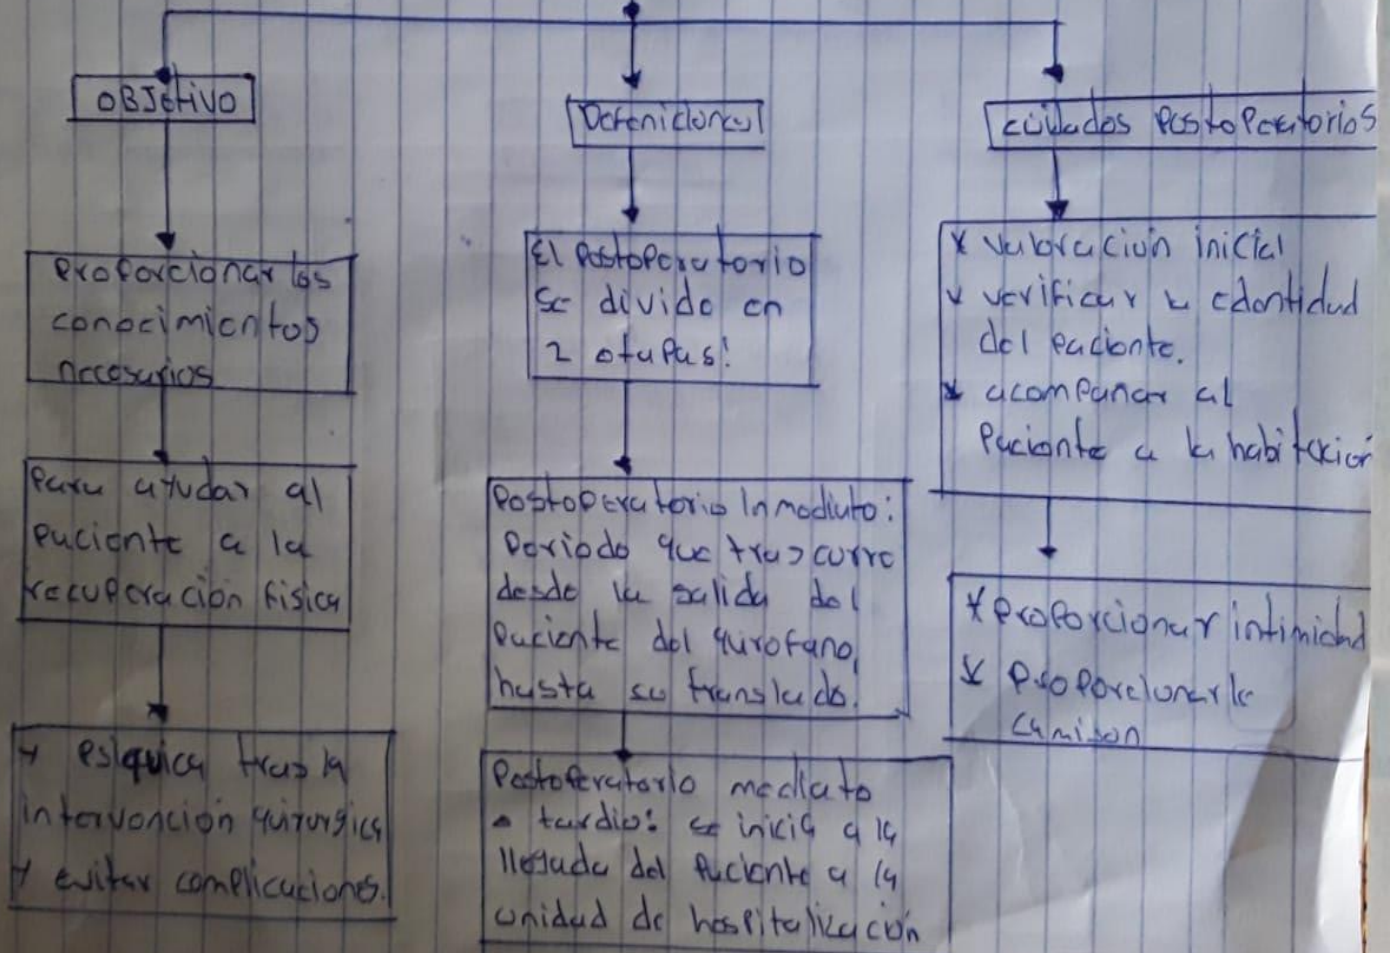 OBJetivo
Proporcionar los
conocimientos
necesarios
Para ayudar al
Paciente a la
recuperación Fisica
y Psiquica tras la
intervención quirurgica
y evitar complicaciones.
Defeniciones
El Postoperatorio
se divide en
2 etapas:
Postoperatorio Inmediato:
Periodo que trascurre
desde la salida del
Paciente del quirofano,
hasta su translado.
Postoperatorio mediato
o tardio: se inicia a la
llegada del Paciente a la
unidad de hospitalización
cuidados Postoperatorios
* Valoración inicial
* verificar la edentidad
del Paciente.
* acompanar al
Paciente a la habitación
* Proporcionar intimidad
* Proporcionarle
camison